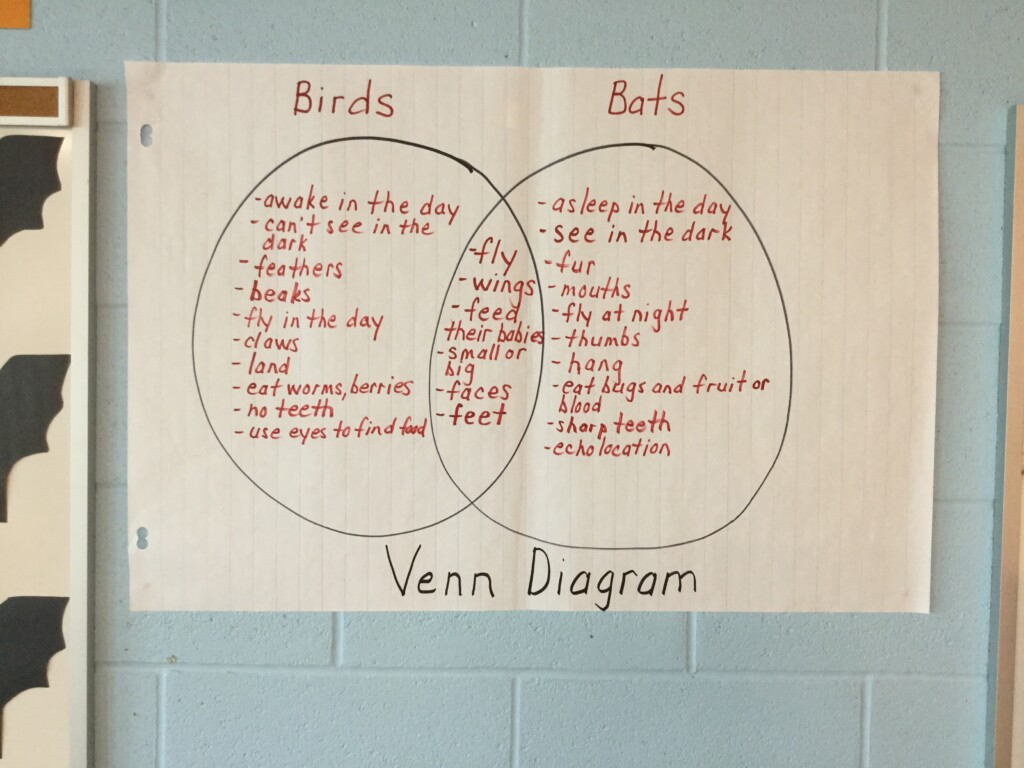 Birds
Bats
-awake in the day
-can't see in the
dark
-feathers
-beaks
-fly in the day
-claws
-land
-eat worms, berries
-no teeth
-use eyes to find food
-fly
-wings
-feed
their babies
-small or
big
-faces
-feet
-asleep in the day
-see in the dark
-fur
-mouths
-fly at night
-thumbs
-hang
-eat bugs and fruit or
blood
-sharp teeth
-echolocation
Venn Diagram